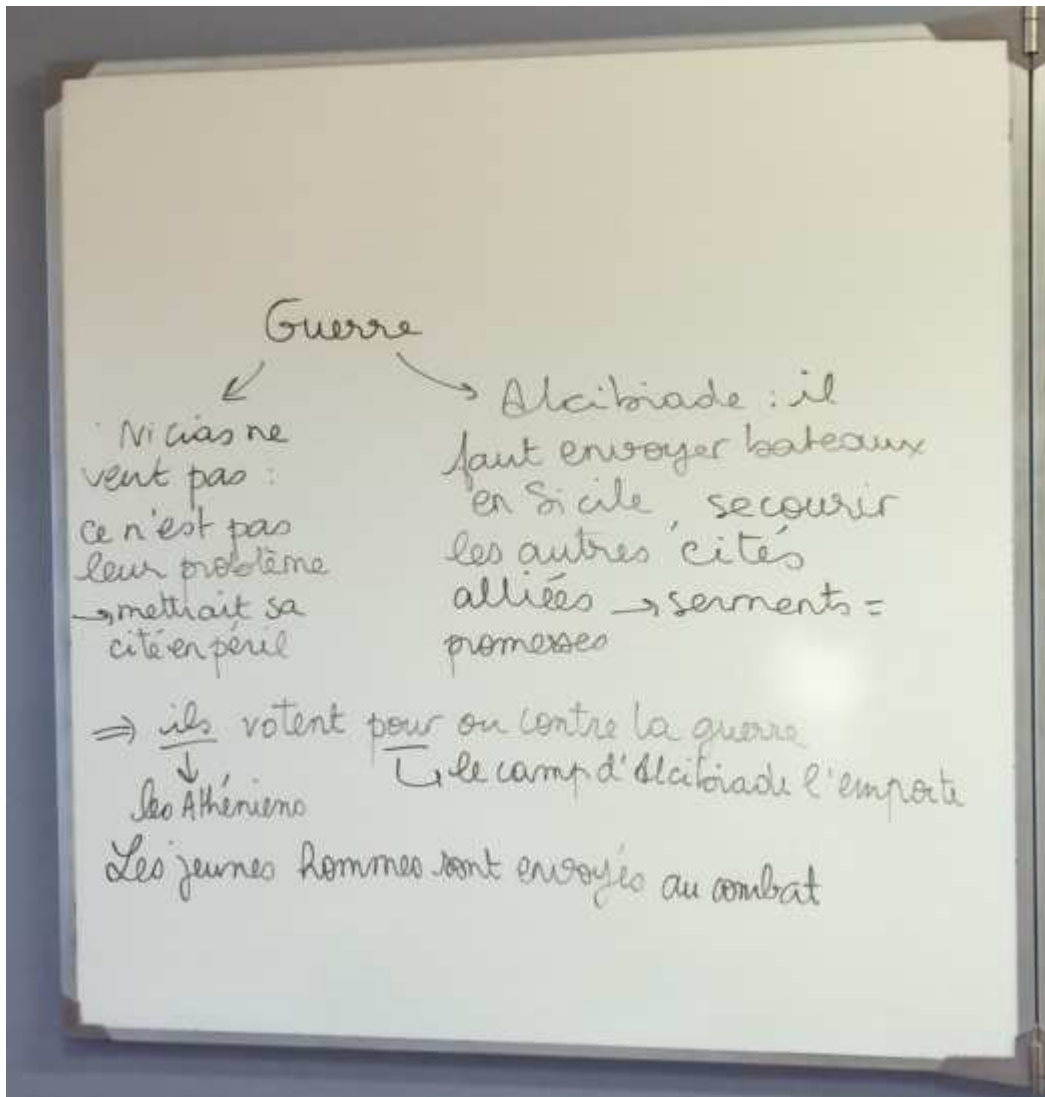 Guerre
Nicias ne
veut pas :
ce n'est pas
leur problème
→ mettrait sa
cité en péril
Alcibiade : il
faut envoyer bateaux
en Sicile, secourir
les autres cités
alliées → serments =
promesses
⇒ ils votent pour ou contre la guerre
↳ le camp d'Alcibiade l'emporte
les Athéniens
Les jeunes hommes sont envoyés au combat